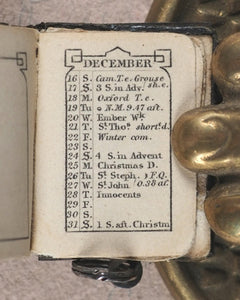 DECEMBER
16 S. Cam. T. e. Grouse
17 S. 3 S. in Adv. sh. e.
18 M. Oxford T. e.
19 Tu N.M. 9.47 aft.
20 W. Ember Wk
21 T. St Thos. short. d.
22 F. Winter com.
23 S.
24 S. 4 S. in Advent
25 M. Christmas D.
26 Tu St Steph. F.Q.
27 W. St John 0.38 af.
28 T. Innocents
29 F.
30 S.
31 S. 1 S. aft. Christm